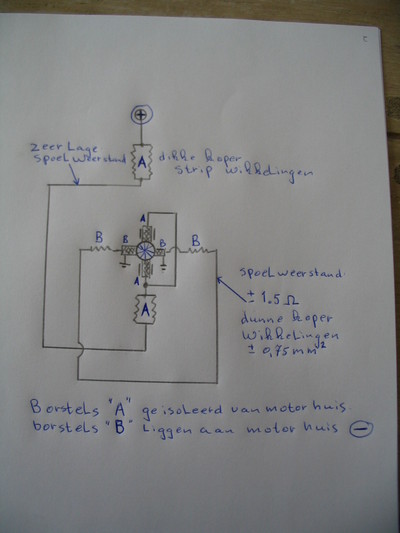 zeer Lage
spoelweerstand
A
dikke koper
strip wikkelingen
A
B
B
B
B
A
A
spoelweerstand:
± 1.5 Ω
dunne koper
wikkelingen
± 0,75 mm²
Borstels "A" geisoleerd van motor huis
borstels "B" Liggen aan motor huis ⊖